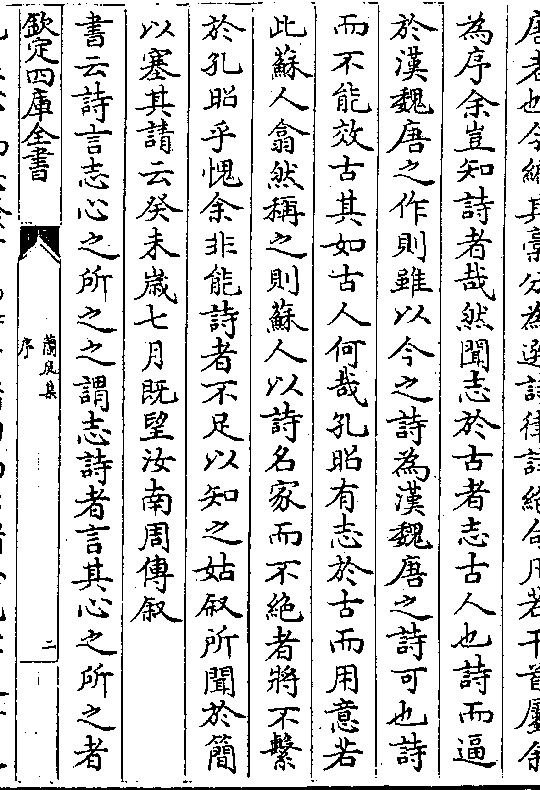 唐者也今編其藁分為選詩律詩絶句凡若干首屬余
為序余豈知詩者哉然聞志於古者志古人也詩而逼
於漢魏唐之作則雖以今之詩為漢魏唐之詩可也詩
而不能效古其如古人何哉孔昭有志於古而用意若
此蘇人翕然稱之則蘇人以詩名家而不絶者將不繫
於孔昭乎愧余非能詩者不足以知之姑叙所聞於簡
以塞其請云癸未歳七月既望汝南周傳叙
書云詩言志心之所之之謂志詩者言其心之所之者
欽定四庫全書
蘭庭集
序
二